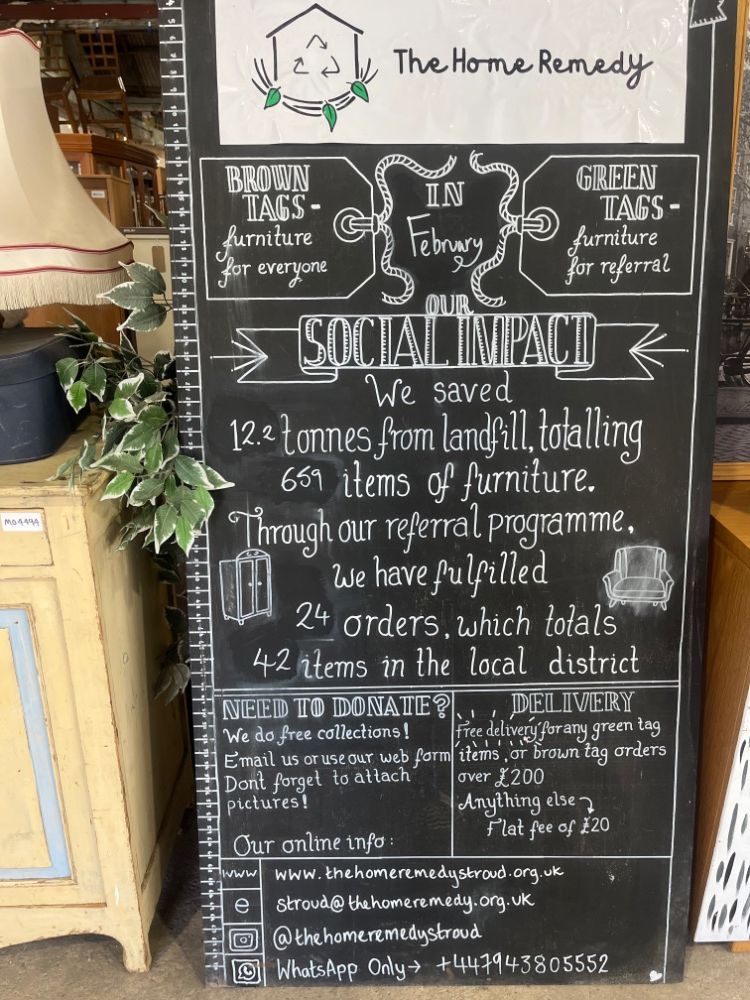 The Home Remedy
BROWN
TAGS -
furniture
for everyone
IN
February
GREEN
TAGS -
furniture
for referral
OUR
SOCIAL IMPACT
We saved
12.2 tonnes from landfill, totalling
659 items of furniture.
Through our referral programme,
we have fulfilled
24 orders, which totals
42 items in the local district
NEED TO DONATE?
We do free collections!
Email us or use our web form
Dont forget to attach
pictures!
Our online info:
DELIVERY
Free delivery for any green tag
items, or brown tag orders
over £200
Anything else
Flat fee of £20
www www.thehomeremedystroud.org.uk
e stroud@thehomeremedy.org.uk
@thehomeremedystroud
WhatsApp Only→ +447943805552
M04494